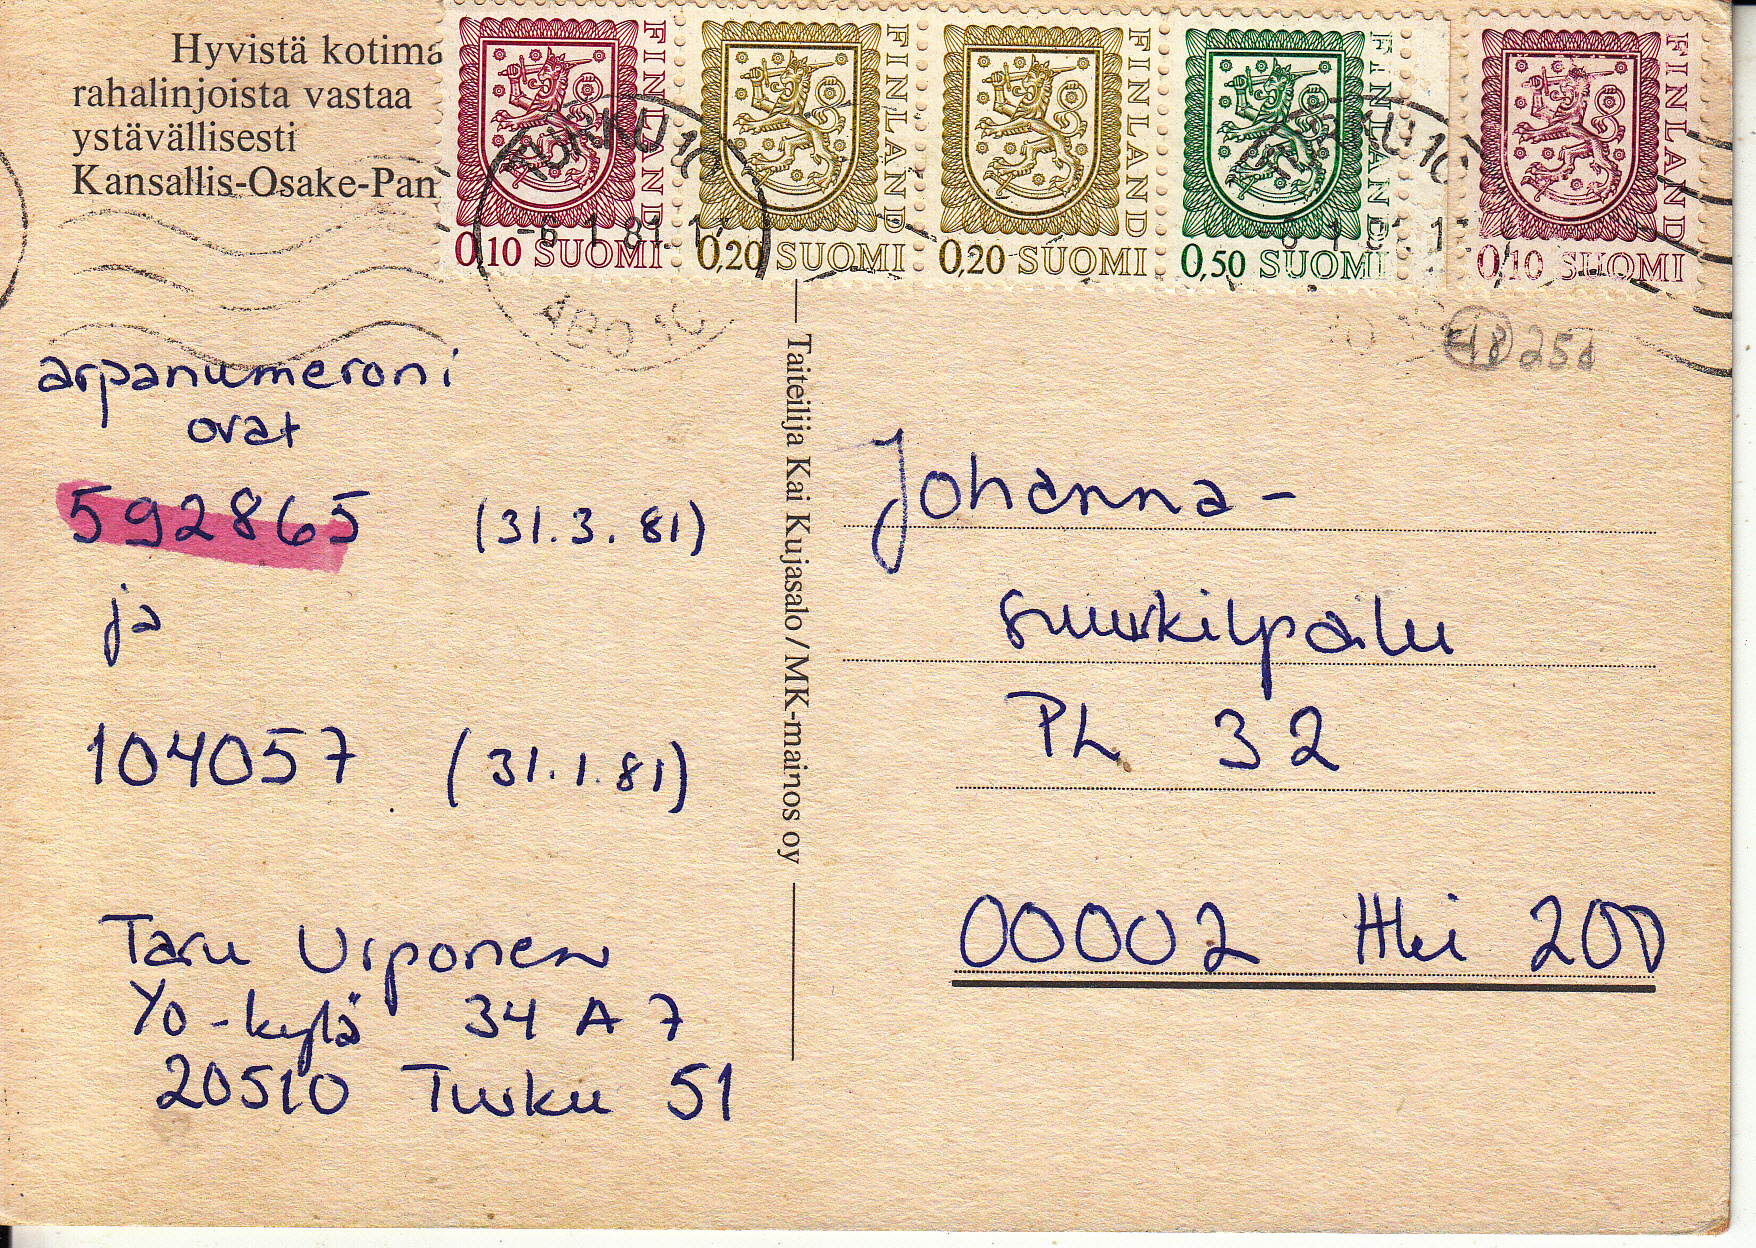 Hyvistä kotima
rahalinjoista vastaa
ystävällisesti
Kansallis-Osake-Pan
FINLAND
0,10 SUOMI
FINLAND
0,20 SUOMI
FINLAND
0,20 SUOMI
FINLAND
0,50 SUOMI
FINLAND
0,10 SUOMI
TURKU 10
-6.1.81.
ÅBO 10
18 25d
arpanumeroni
ovat
592865 (31.3.81)
ja
104057 (31.1.81)
Taru Urponen
Yo-kylä 34 A 7
20510 Turku 51
Taiteilija Kai Kujasalo / MK-mainos oy
Johanna-
suurkilpailu
PL 32
00002 Hki 200